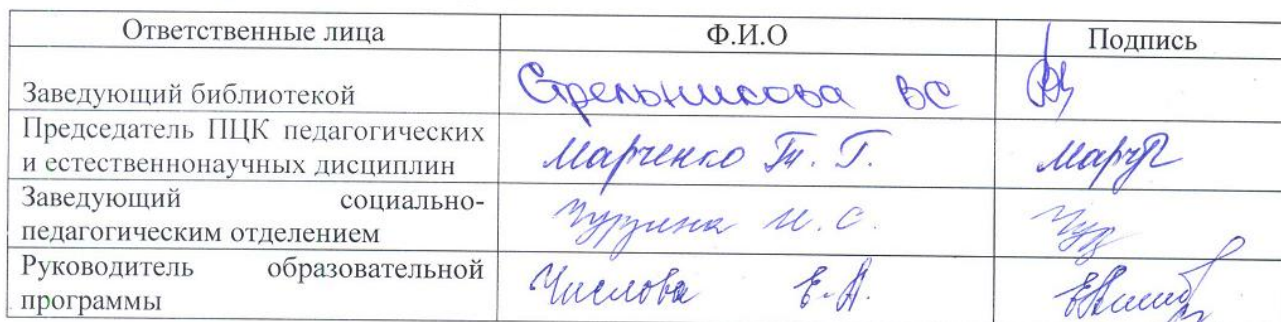 Ответственные лица Ф.И.О Подпись
Заведующий библиотекой Стрельникова ВС
Председатель ПЦК педагогических
и естественнонаучных дисциплин Марченко Т. Г.
Заведующий социально-
педагогическим отделением И. С.
Руководитель образовательной
программы Числова Е.А.